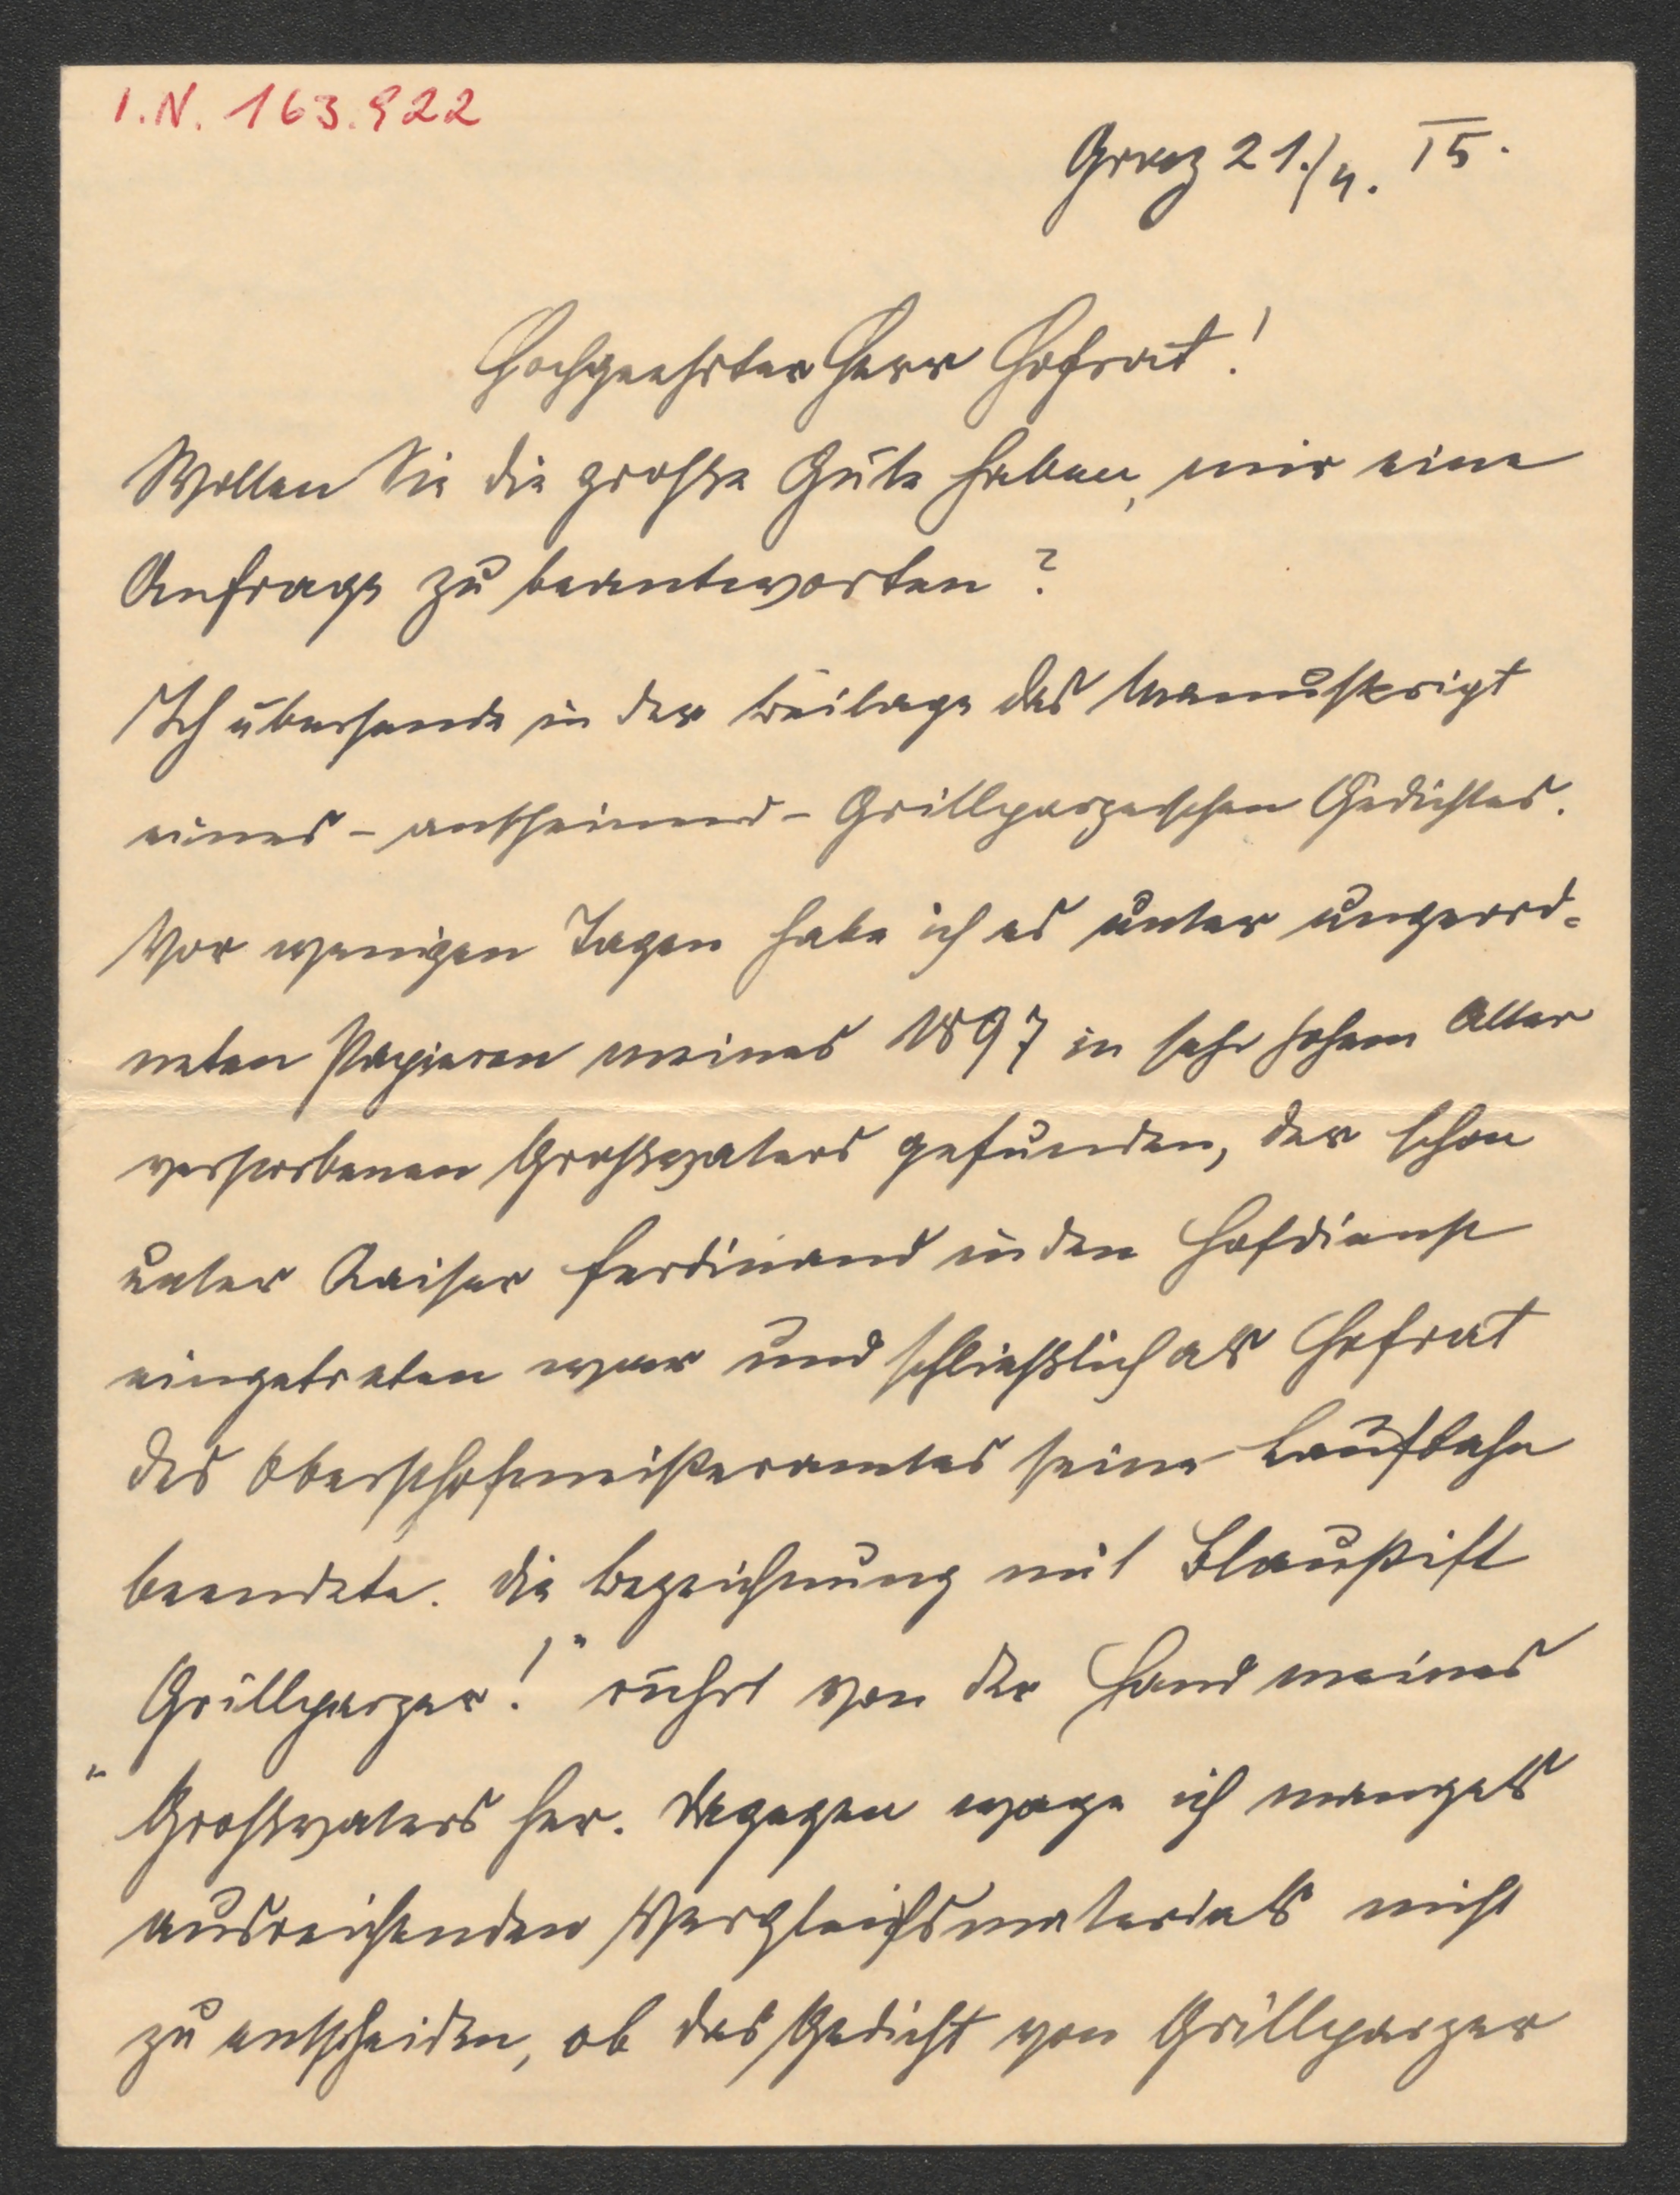 I.N. 163.922
Graz 21./4. 15.
Hochgeehrter Herr Hofrat!
Wollen Sie die große Güte haben, mir eine
Anfrage zu beantworten?
Ich übersende in der Beilage das Manuskript
eines - anscheinend - Grillparzerschen Gedichtes.
Vor wenigen Tagen habe ich es unter ungeord-
neten Papieren meines 1897 in sehr hohem Alter
verstorbenen Großvaters gefunden, der schon
unter Kaiser Ferdinand in den Hofdienst
eingetreten war und schließlich als Hofrat
des Obersthofmeisteramtes seine Laufbahn
beendete. Die Bezeichnung mit Blaustift
„Grillparzer!" rührt von der Hand meines
Großvaters her. Dagegen wage ich mangels
ausreichenden Vergleichsmaterials nicht
zu entscheiden, ob das Gedicht von Grillparzer